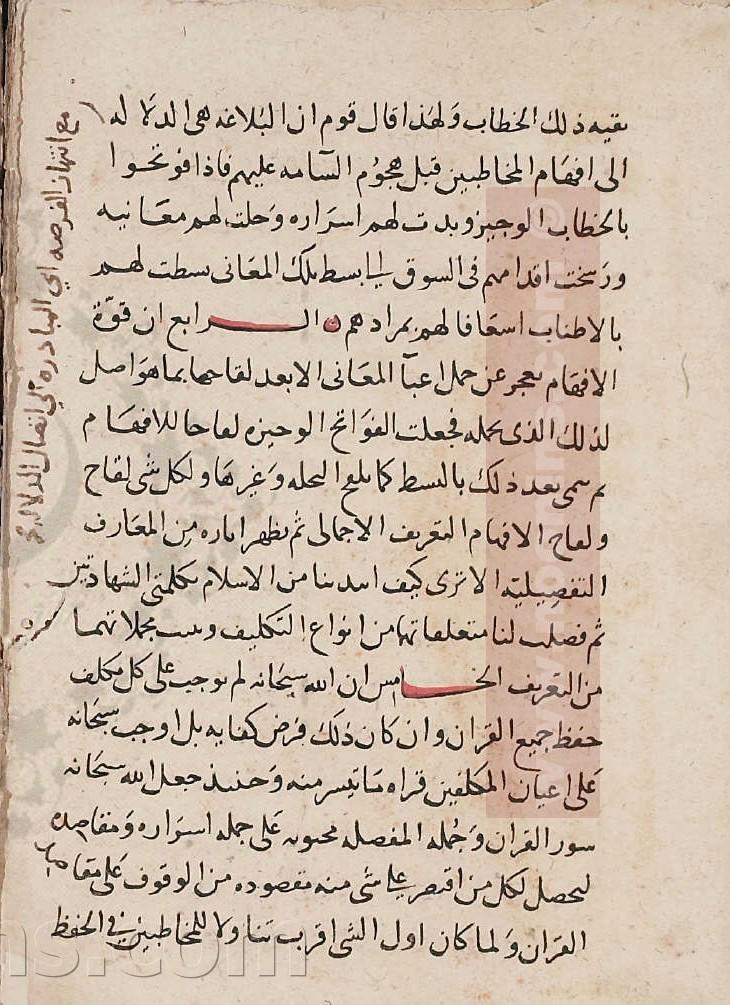 بقيه ذلك الخطاب ولهذا قال قوم ان البلاغه هى الدلاله
الى افهام المخاطبين قبل هجوم السآمه عليهم فاذا فوتحوا
بالخطاب الوجيز وبدت لهم اسراره وحلت لهم معانيه
ورسخت اقدامهم فى السوق الى بسط تلك المعانى بسطت لهم
بالاطناب اسعافا لهم بمرادهم ۞ الرابع ان قوّة
الافهام تعجز عن حمل اعبآ المعانى الا بعد لقاحها بما هو اصل
لذلك الذى تحمله فجعلت الفواتح الوجيزه لقاحا للافهام
ثم سمى بعد ذلك بالبسط كما تلقح النخله وغيرها ولكل شى لقاح
ولقاح الافهام التعريف الاجمالى ثم يظهر اباره من المعارف
التفصيليّه الا ترى كيف ابتدينا من الاسلام بكلمتى الشهادتين
ثم فصلت لنا متعلقاتها من انواع التكليف وبينت مجملاتهما
من التعريف الخامس ان الله سبحانه لم يوجب على كل مكلف
حفظ جميع القران وان كان ذلك فرض كفايه بل اوجب سبحانه
على اعيان المكلفين قراه ما تيسر منه وحينيذ جعل الله سبحانه
سور القران وجمله المفصله محتويه على جمله اسراره ومقاصده
ليحصل لكل من اقتصر على شى منه مقصوده من الوقوف على مقاصد
القران ولما كان اول الشى اقرب تناولا للمخاطبين فى الحفظ
مع انتهاز الفرصه اي المبادره الى ايصال الدلاله